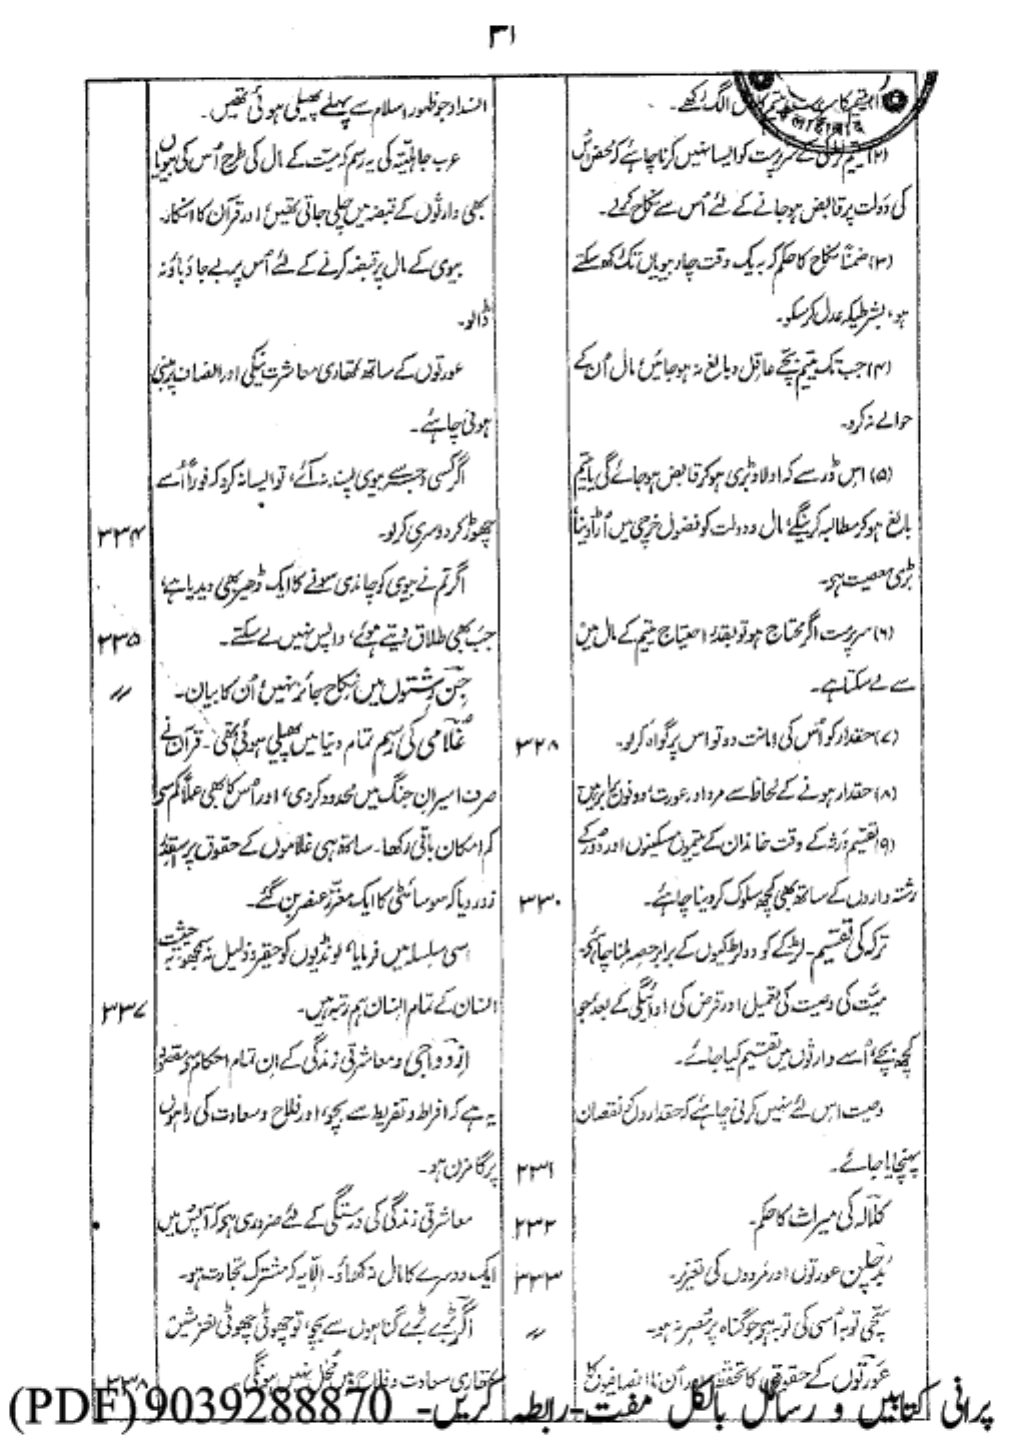 ۳۱
(۲) یتیم لڑکی کے سرپرست کو ایسا نہیں کرنا چاہئے کہ محض اُس
کی دَولت پر قابض ہوجانے کے لئے اُس سے نکاح کرلے۔
(۳) ضمناً نکاح کا حکم کہ بہ یک وقت چار بیویاں تک رکھ سکتے
ہو، بشرطیکہ عدل کرسکو۔
(۴) جب تک یتیم بچّے عاقل و بالغ نہ ہوجائیں، مال اُن کے
حوالے نہ کرو۔
(۵) اس ڈر سے کہ اولاد بڑی ہوکر قابض ہوجائے گی یا یتیم
بالغ ہوکر مطالبہ کرینگے، مال و دولت کو فضول خرچی میں اُڑا دینا
بڑی معصیت ہے۔
(۶) سرپرست اگر محتاج ہو تو بقدر احتیاج یتیم کے مال میں
سے لے سکتا ہے۔
(۷) حقدار کو اُس کی امانت دو تو اس پر گواہ کرلو۔ ۳۲۸
(۸) حقدار ہونے کے لحاظ سے مرد اور عورت، دونوں برابر ہیں
(۹) تقسیم ورثہ کے وقت خاندان کے یتیموں مسکینوں اور دور کے
رشتہ داروں کے ساتھ بھی کچھ سلوک کردینا چاہئے۔ ۳۳۰
ترکہ کی تقسیم۔ لڑکے کو دو لڑکیوں کے برابر حصہ ملنا چاہئے۔
میّت کی وصیت کی تعمیل اور قرض کی ادائیگی کے بعد جو
کچھ بچے، اُسے وارثوں میں تقسیم کیا جائے۔
وصیت اس لئے نہیں کرنی چاہئے کہ حقداروں کو نقصان
پہنچایا جائے۔ ۳۳۱
کلالہ کی میراث کا حکم۔ ۳۳۲
بدچلن عورتوں اور مردوں کی تعزیر۔ ۳۳۳
سچّی توبہ اُسی کی توبہ ہے جو گناہ پر مُصر نہ ہو۔ 〃
عورتوں کے حقوق کا تحفظ اور اُن ناانصافیوں کا
انسداد جو ظہور اسلام سے پہلے پھیلی ہوئی تھیں۔
عرب جاہلیّت کی یہ رسم کہ میّت کے مال کی طرح اُس کی بیویاں
بھی وارثوں کے قبضہ میں چلی جاتی تھیں، اور قرآن کا انکار۔
بیوی کے مال پر قبضہ کرنے کے لئے اُس پر بے جا دباؤ نہ
ڈالو۔
عورتوں کے ساتھ تمھاری معاشرت نیکی اور انصاف پر مبنی
ہونی چاہئے۔
اگر کسی وجہ سے بیوی پسند نہ آئے، تو ایسا نہ کرو کہ فوراً اُسے
چھوڑ کر دوسری کرلو۔ ۳۳۴
اگر تم نے بیوی کو چاندی سونے کا ایک ڈھیر بھی دیدیا ہے،
جب بھی طلاق دیتے ہوئے، واپس نہیں لے سکتے۔ ۳۳۵
جن رشتوں میں نکاح جائز نہیں، اُن کا بیان۔ 〃
غلامی کی رسم تمام دنیا میں پھیلی ہوئی تھی۔ قرآن نے
صرف اسیرانِ جنگ میں محدود کردی، اور اُس کا بھی عملاً کم سے
کم امکان باقی رکھا۔ ساتھ ہی غلاموں کے حقوق پر اسقدر
زور دیا کہ سوسائٹی کا ایک معزّز عنصر بن گئے۔
اسی سلسلہ میں فرمایا، لونڈیوں کو حقیر و ذلیل نہ سمجھو۔ بہ حیثیت
انسان کے تمام انسان ہم رتبہ ہیں۔ ۳۳۷
ازدواجی و معاشرتی زندگی کے اِن تمام احکام سے مقصود
یہ ہے کہ افراط و تفریط سے بچو، اور فلاح و سعادت کی راہوں
پر گامزن ہو۔
معاشرتی زندگی کی درستگی کے لئے ضروری ہے کہ آپس میں
ایک دوسرے کا مال نہ کھاؤ۔ الّا یہ کہ مشترک تجارت ہو۔
اگر بڑے بڑے گناہوں سے بچو، تو چھوٹی چھوٹی لغزشیں
تمھاری سعادت و فلاح میں مخل نہیں ہونگی۔ ۳۳۸
پرانی کتابیں و رسائل بالکل مفت- رابطہ کریں- 9039288870 (PDF)